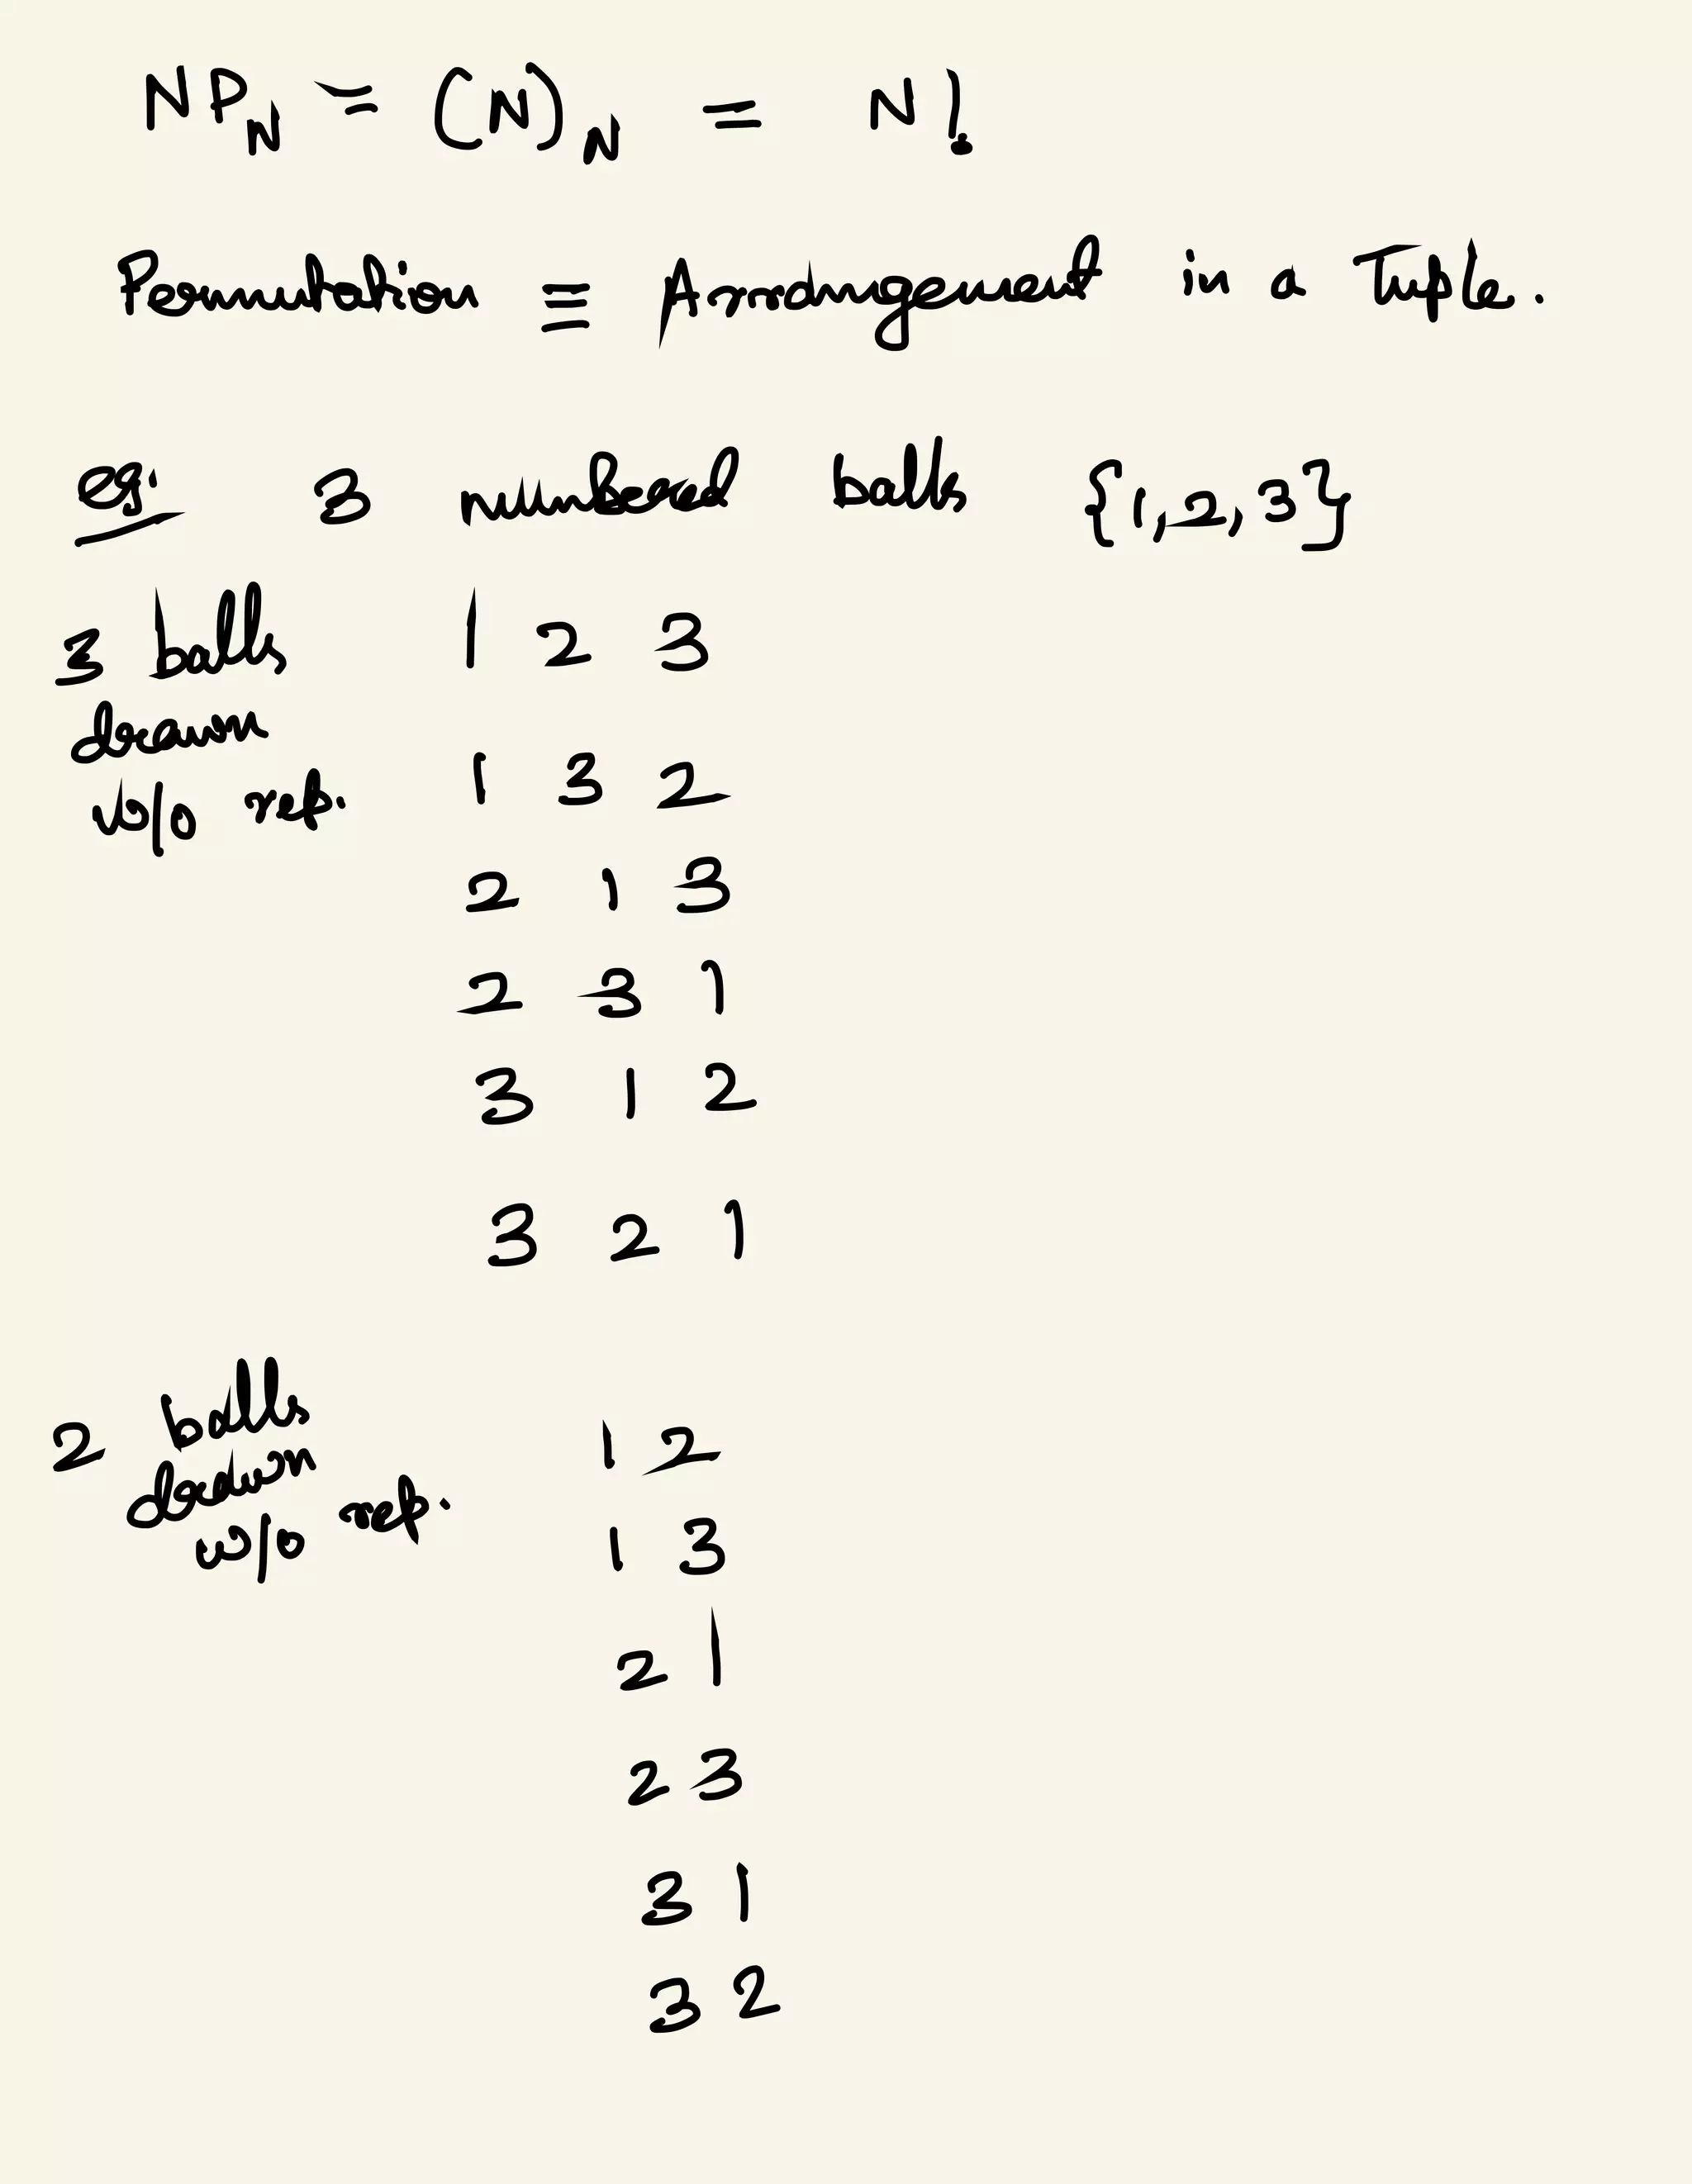 NP_N = (N)_N = N!
Permutation ≡ Arrangement in a Tuple.
eg: 3 numbered balls {1,2,3}
3 balls 1 2 3
drawn
w/o rep. 1 3 2
2 1 3
2 3 1
3 1 2
3 2 1
2 balls 1 2
drawn
w/o rep. 1 3
2 1
2 3
3 1
3 2